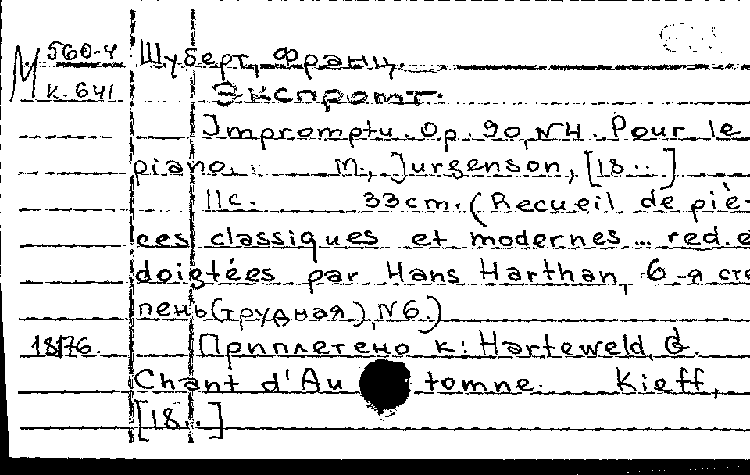 М 560-4 Шуберт, Франц.
к. 641 Экспромт.
Impromptu. Op. 90, N4. Pour le
piano. M., Jurgenson, [18..]
11с. 33cm. (Recueil de piè-
ces classiques et modernes... red. e
doigtées par Hans Harthan, 6-я сте
пень (трудная), N6.)
18176. Приплетено к: Harteweld, G.
Chant d'Automne. Kieff,
[18..]